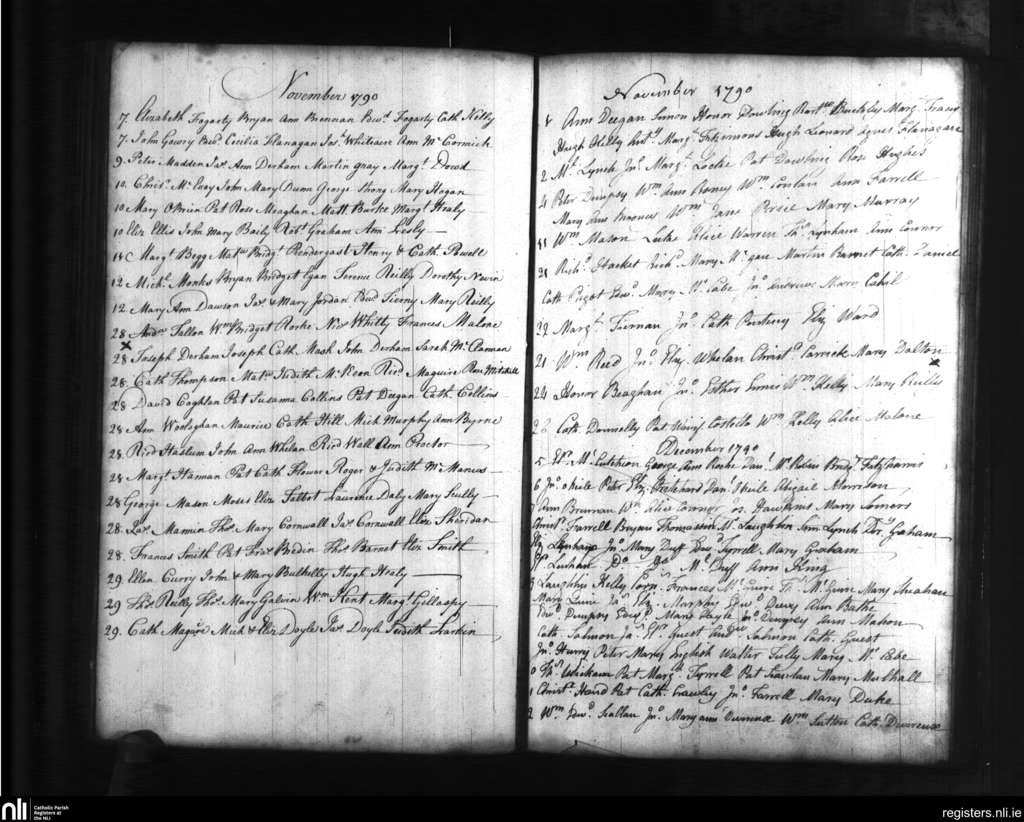 November 1790
7. Elizabeth Fogarty Bryan Ann Brennan Edwd. Fogarty Cath Kelly
7. John Gowry Edwd. Cecilia Flanagan Jas. Whiteacre Ann McCormick
9. Peter Madden Jas Ann Derham Martin gray Margt. Dowd
10. Chrisr. McEvoy John Mary Dunn George Strong Mary Hagan
10 Mary O'Brien Pat Rose Meaghan Matt. Burke Margt Healy
10 Eliz Ellis John Mary Baily Robt Graham Ann Lesly
11 C Margt Begge Matw Bridgt. Prendergast Henry & Cath. Powell
12 Michl. Monks Bryan Bridget Egan Terence Reilly Dorothy Nevin
12 Mary Ann Dawson Jas & Mary Jordan Edwd Tierny Mary Reilly
28 Andw Fallon Wm Bridget Rorke Nis Whitty Frances Malone
x
28 Joseph Derham Joseph Cath Mash John Derham Sarah McClannan
28. Cath Thompson Matw Judith McKeon Ricd. Maguire Ann Mitchell
28 David Coghlan Pat Susanna Collins Pat Deegan Cath. Collins
28 Ann Woologhan Maurice Cath Hill Mich Murphy Ann Byrne
28. Ricd Haslum John Ann Whelan Ricd Wall Ann Proctor
28. Margt Haman Pat Cath Flower Roger & Judith McManus
28 George Mason Moses Eliz Talbot Laurence Daly Mary Scully
28. Lar. Mannin Thos Mary Cornwall Jas Cornwall Eliz Sheridan
28. Frances Smith Pat Fras Bredin Thos Barnet Eliz Smith
29. Ellen Curry John & Mary Bulkelly Hugh Healy
29 Thos Reilly Thos. Mary Galvin Wm Kent Margt Gillaspy
29. Cath Maguire Mich & Eliz Doyle Jas Doyle Judith Larkin
November 1790
Ann Deegan Simon Honor Dowling Bartw Buckley Margt Tracy
Hugh Kelly Margt Fitzsimons Hugh Leonard Agnes Flanagan
2 Mt. Lynch Jno. Margt. Locke Pat Dowling Rose Hughes
4 Peter Dempsy Wm Ann Wm Conlan Ann Farrell
Mary Ann Wm Jane Persie Mary Murray
11 Wm Mason Luke Alice Warren Thos. Lynham Ann Connor
21 Richd. Hacket Richd Mary Martin Barnet Cath. Daniel
Cath Pagot Edwd Mary McCabe Jno Mary Cahil
22 Margt. Tiernan Jno. Cath Eliz Ward
21 Wm Reed Jno. Eliz Whelan Christr Carrick Mary Dalton
24 Honor Beaghan Jno. Esther Ennis Wm Kelly Mary Reilly
Cath Donnelly Pat Winif Costello Wm Kelly Alice Malone
December 1790
5 George Ann Roche Danl. Bridgt. Fitzharris
6 Jno. OKiele Peter Eliz Pritchard Danl OKiele Abigail Morrison
Ann Brennan Wm Alice Connor Hawkins Mary Somers
Christr. Farrell Bryan Thomasin McLaughlin Ann Lynch Graham
Lynham Jno. Mary Duff Edwd Tyrrell Mary Graham
Do. Do. McDuff Ann King
Laughlin Kelly Frances McGuire McGuire Mary
Mary Jas Eliz. Murphy Edwd. Ann Bathe
Edwd. Dempsy Edwd. Mary Hayle Jno. Dempsy Ann Mahon
Cath. Salmon Guest Salmon Cath. Guest
Jno. Hurry Peter Mary English Walter Tully Mary McCabe
Wickham Pat Margt. Tyrrell Pat Scanlan Mary Mulhall
Christr. Hand Pat Cath. Crawley Jno. Farrell Mary Duke
2 Wm Edwd. Scallan Jno. Maryann Wm Sutton Cath. Devereux
nli
Catholic Parish
Registers at
the NLI
registers.nli.ie